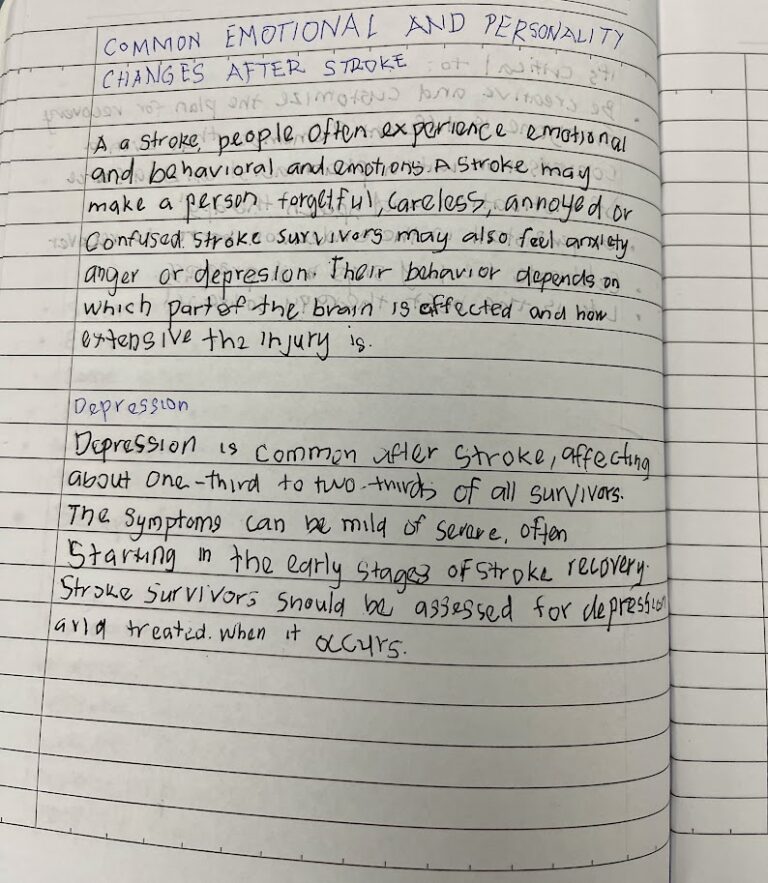 COMMON EMOTIONAL AND PERSONALITY
CHANGES AFTER STROKE
A a stroke, people often experience emotional
and behavioral and emotions A stroke may
make a person forgetful, careless, annoyed or
Confused. Stroke survivors may also feel anxiety
anger or depresion. Their behavior depends on
which part of the brain is affected and how
extensive the injury is.
Depression
Depression is common after stroke, affecting
about one-third to two-thirds of all survivors.
The symptoms can be mild of severe, often
Starting in the early stages of stroke recovery.
Stroke survivors should be assessed for depression
and treated. when it occurs.